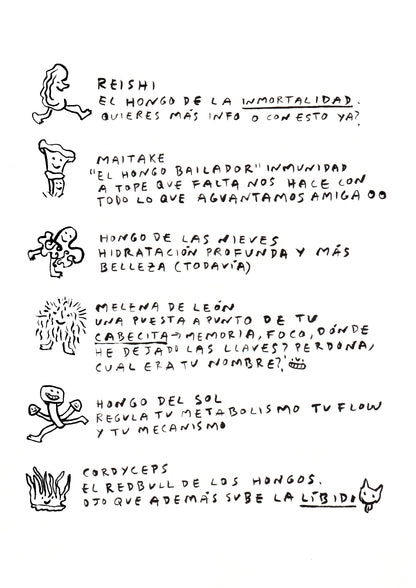 REISHI
EL HONGO DE LA INMORTALIDAD.
QUIERES MÁS INFO O CON ESTO YA?
MAITAKE
"EL HONGO BAILADOR" INMUNIDAD
A TOPE QUE FALTA NOS HACE CON
TODO LO QUE AGUANTAMOS AMIGA
HONGO DE LAS NIEVES
HIDRATACIÓN PROFUNDA Y MÁS
BELLEZA (TODAVÍA)
MELENA DE LEÓN
UNA PUESTA A PUNTO DE TU
CABECITA → MEMORIA, FOCO, DÓNDE
HE DEJADO LAS LLAVES? PERDONA,
CUAL ERA TU NOMBRE?
HONGO DEL SOL
REGULA TU METABOLISMO TU FLOW
Y TU MECANISMO
CORDYCEPS
EL REDBULL DE LOS HONGOS.
OJO QUE ADEMÁS SUBE LA LÍBIDO